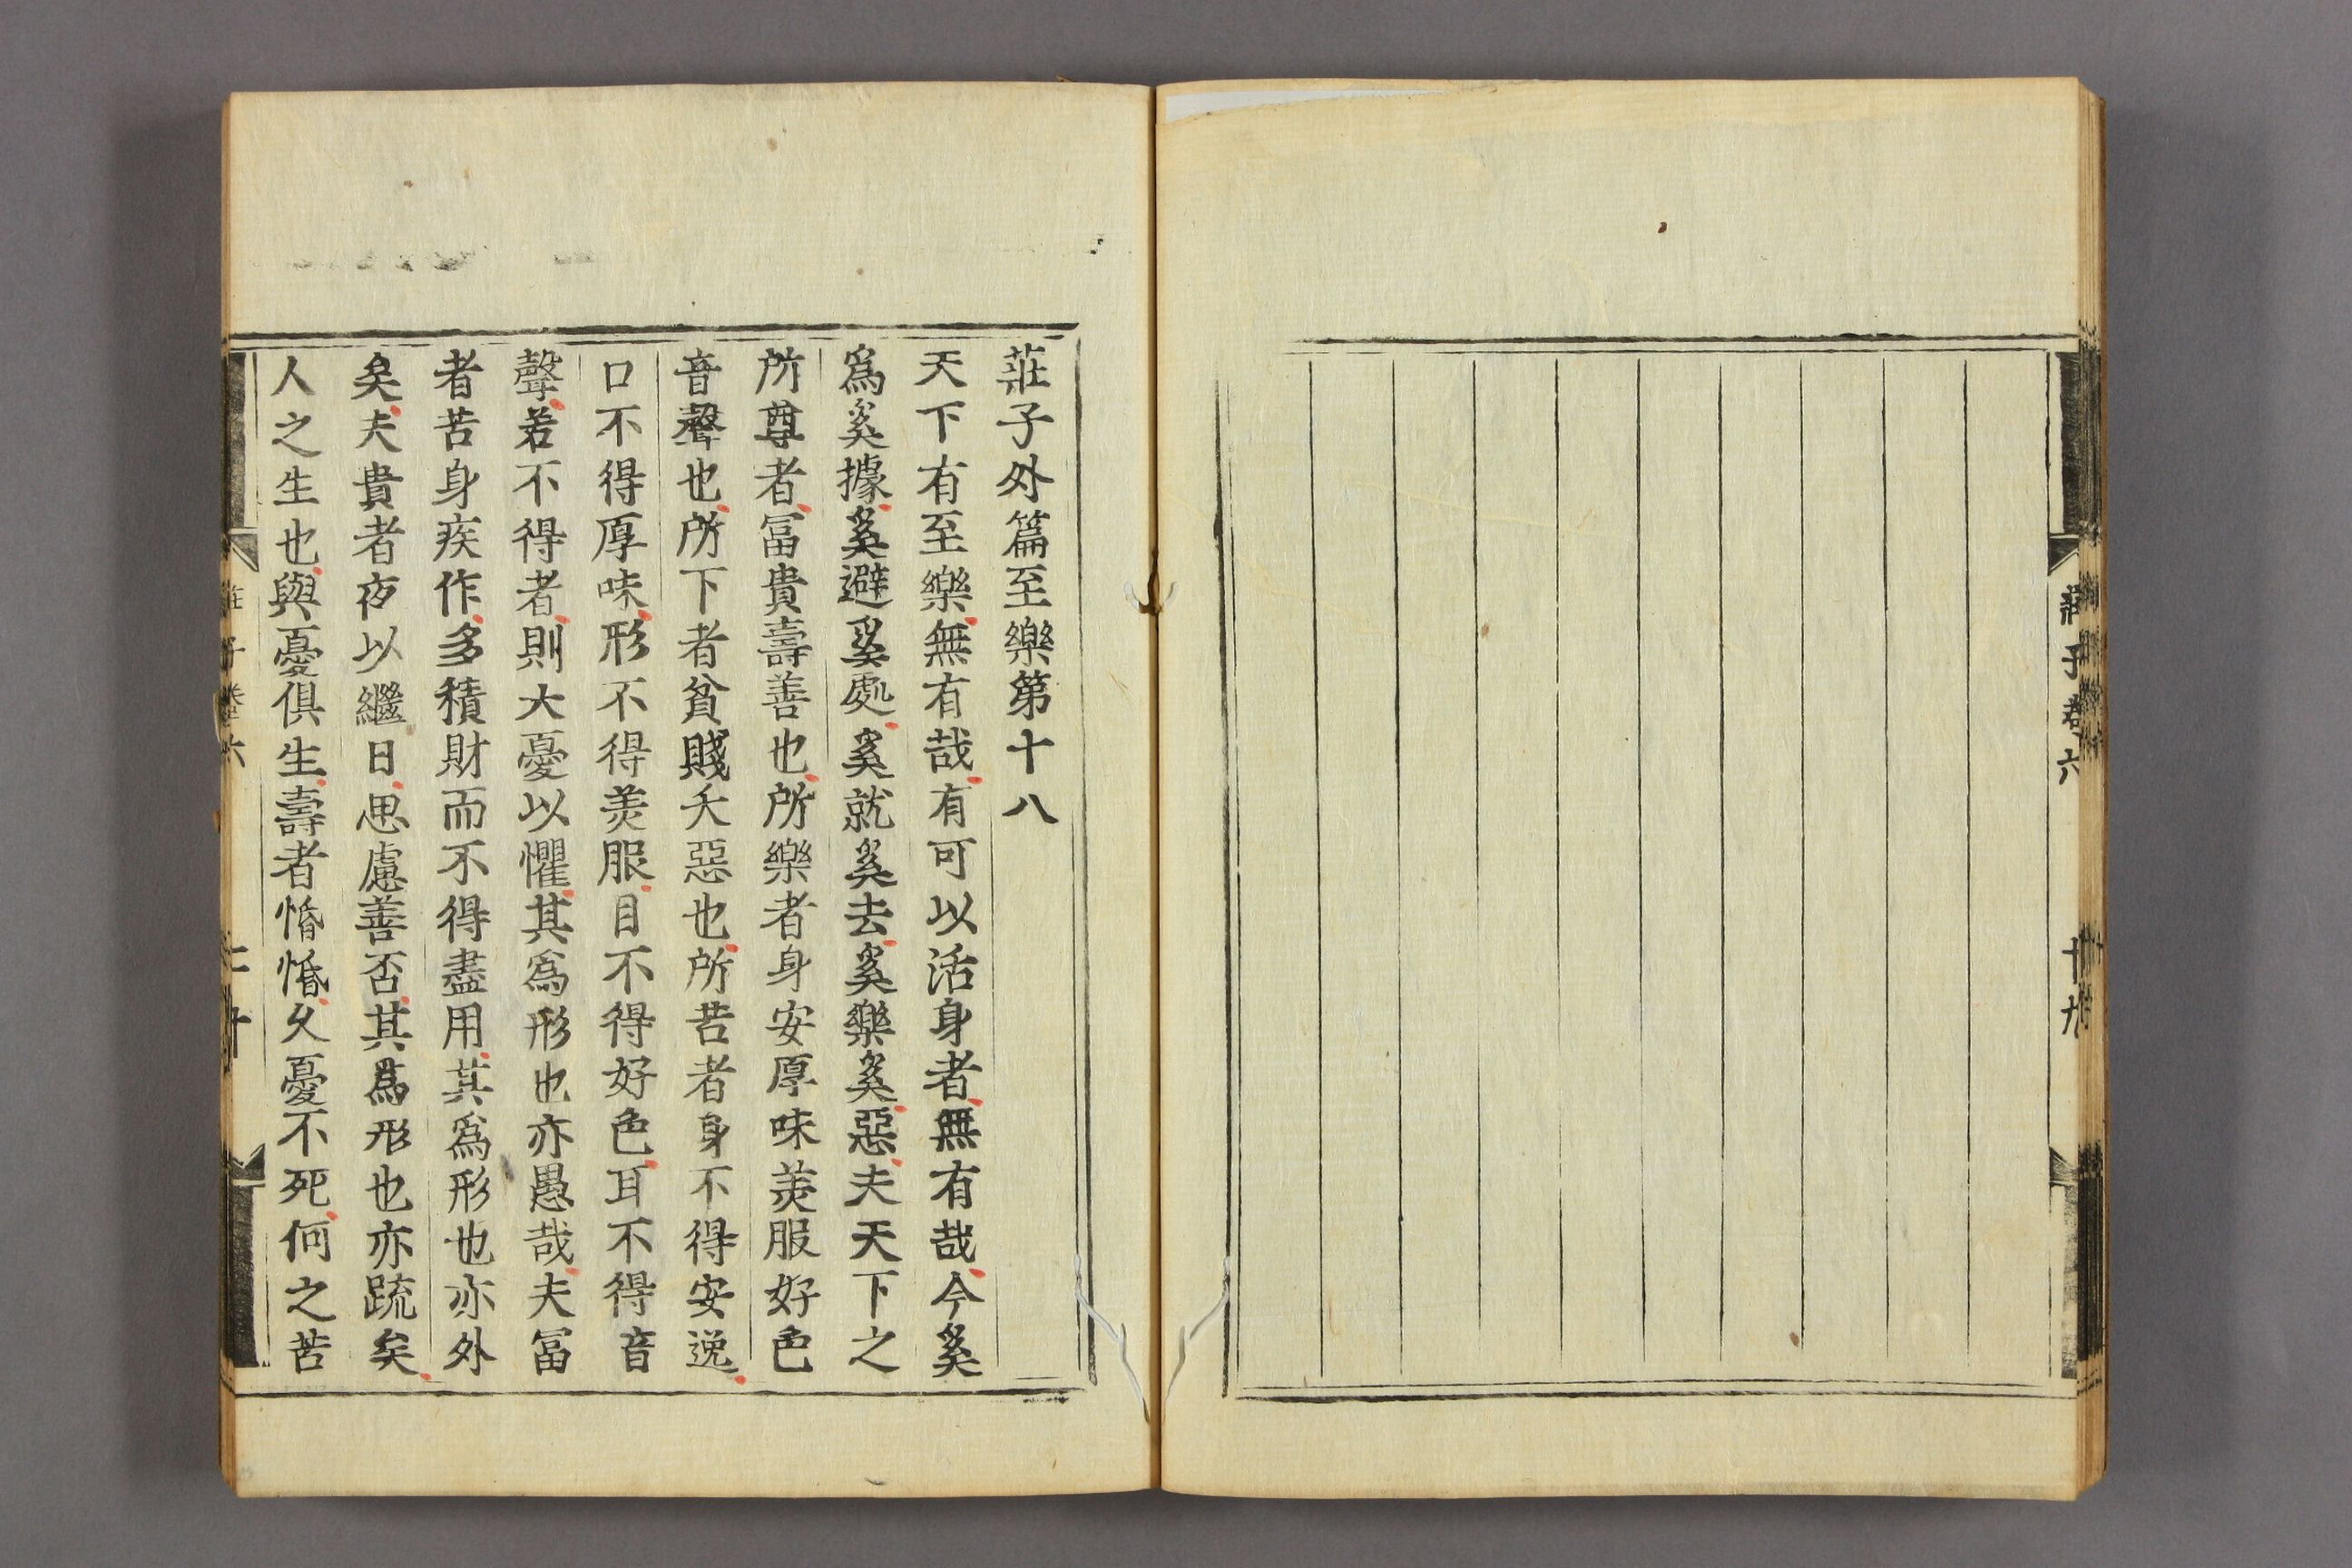 莊子卷六
十九
莊子外篇至樂第十八
天下有至樂無有哉有可以活身者無有哉今奚
爲奚據奚避奚處奚就奚去奚樂奚惡夫天下之
所尊者冨貴壽善也所樂者身安厚味羙服好色
音聲也所下者貧賤夭惡也所苦者身不得安逸
口不得厚味形不得羙服目不得好色耳不得音
聲若不得者則大憂以懼其爲形也亦愚哉夫冨
者苦身疾作多積財而不得盡用其爲形也亦外
矣夫貴者夜以繼日思慮善否其爲形也亦䟽矣
人之生也與憂俱生壽者惛惛久憂不死何之苦
莊子卷六
二十